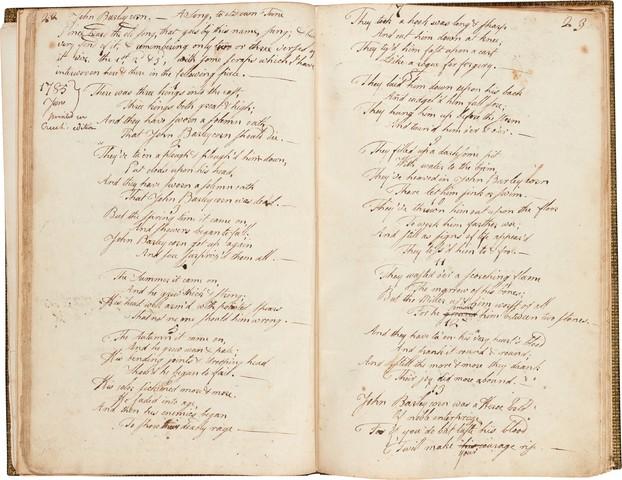 John Barleycorn. — A song, to its own tune
I once heard the old song, that goes by this name, sung; & being
very fond of it, & remembering only two or three verses of
it viz. the 1st, 2d & 3d, with some scraps which I have
interwoven here & there in the following piece. —
1785
June
printed in
Creech's edition
There was three kings into the east,
Three kings both great & high;
And they have sworn a solemn oath
That John Barleycorn should die. —
They've ta'en a plough & plough'd him down,
Put clods upon his head,
And they have sworn a solemn oath
That John Barleycorn was dead. —
But the spring time it came on,
And showers began to fall;
John Barleycorn got up again
And sore surpris'd them all. —
The Summer it came on,
And he grew thick & strong;
His head well arm'd wi' pointed spears
That no one should him wrong. —
The Autumn it came on,
And he grew wan & pale;
His bending joints & drooping head
Show'd he began to fail. —
His color sicken'd more & more,
He faded into age;
And then his enemies began
To show their deadly rage —
23
They took a hook was long & sharp,
And cut him down at knee,
They ty'd him fast upon a cart
Like a rogue for forgery. —
They laid him down upon his back
And cudgel'd him full sore;
They hung him up before the storm
And turn'd him o'er & o'er. —
They filled up a darksome pit
With water to the brim,
They've heaved in John Barleycorn
There let him sink or swim. —
They've thrown him out upon the floor
To work him farther woe;
And still as signs of life appear'd
They toss'd him to & fro. —
11
They wasted o'er a scorching flame
The marrow of his bones;
But the Miller us'd him worst of all
For he him between two stones. —
12
And they have ta'en his very heart's blood
And drank it round & round;
And still the more & more they drank
Their joy did more abound. —
13
John Barleycorn was a Hero bold
Of noble enterprize,
For if you do but taste his blood
'Twill make your courage rise —